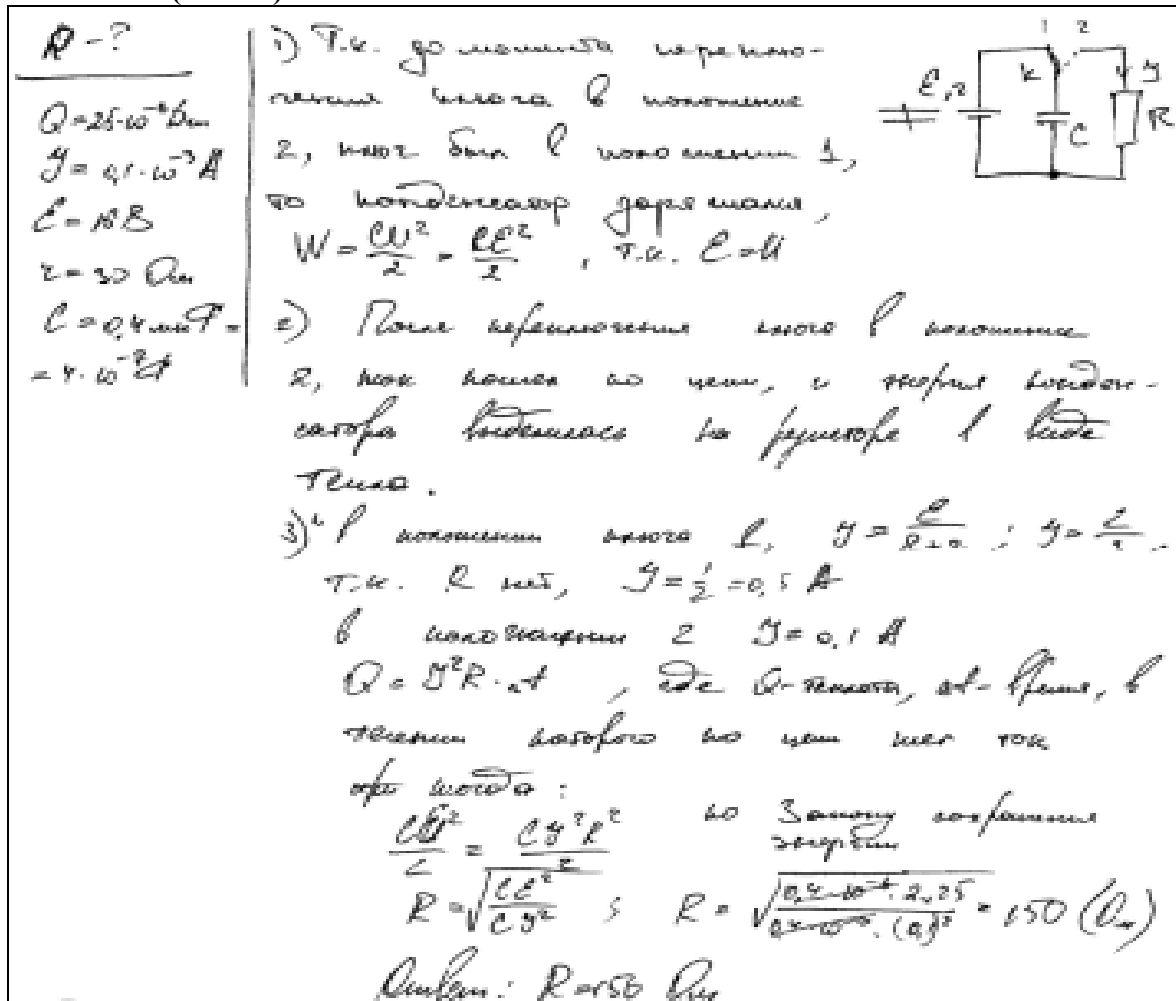 R - ?
Q = 25·10⁻⁶ Дж
I = 0,1·10⁻³ А
ℰ = 15 В
r = 30 Ом
C = 0,4 мкФ =
= 4·10⁻⁷ Ф
1) Т.к. до момента переклю-
чения ключа в положение
2, ключ был в положении 1,
то конденсатор заряжался,
W = CU²/2 = Cℰ²/2 , т.к. ℰ = U
2) После переключения ключа в положение
2, ток пошел по цепи, и энергия конден-
сатора выделилась на резисторе в виде
тепла.
3) В положении ключа 1, I = ℰ/(R+r) ; I = ℰ/r ,
т.к. R нет, I = 1/2 = 0,5 А
в положении 2 I = 0,1 А
Q = I²R·Δt , где Q - теплота, Δt - время, в
течении которого по цепи шел ток
тогда :
CU²/2 = CI²R²/2 по Закону сохранения
энергии
R = √(Cℰ²/CI²) ; R = √(0,4·10⁻⁶·2,25/0,4·10⁻⁶·(0,1)²) = 150 (Ом)
Ответ: R = 150 Ом
1 2
K
ℰ, r
C
I
R